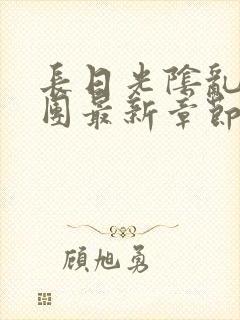 長日光陰亂
團最新章節
顧旭勇